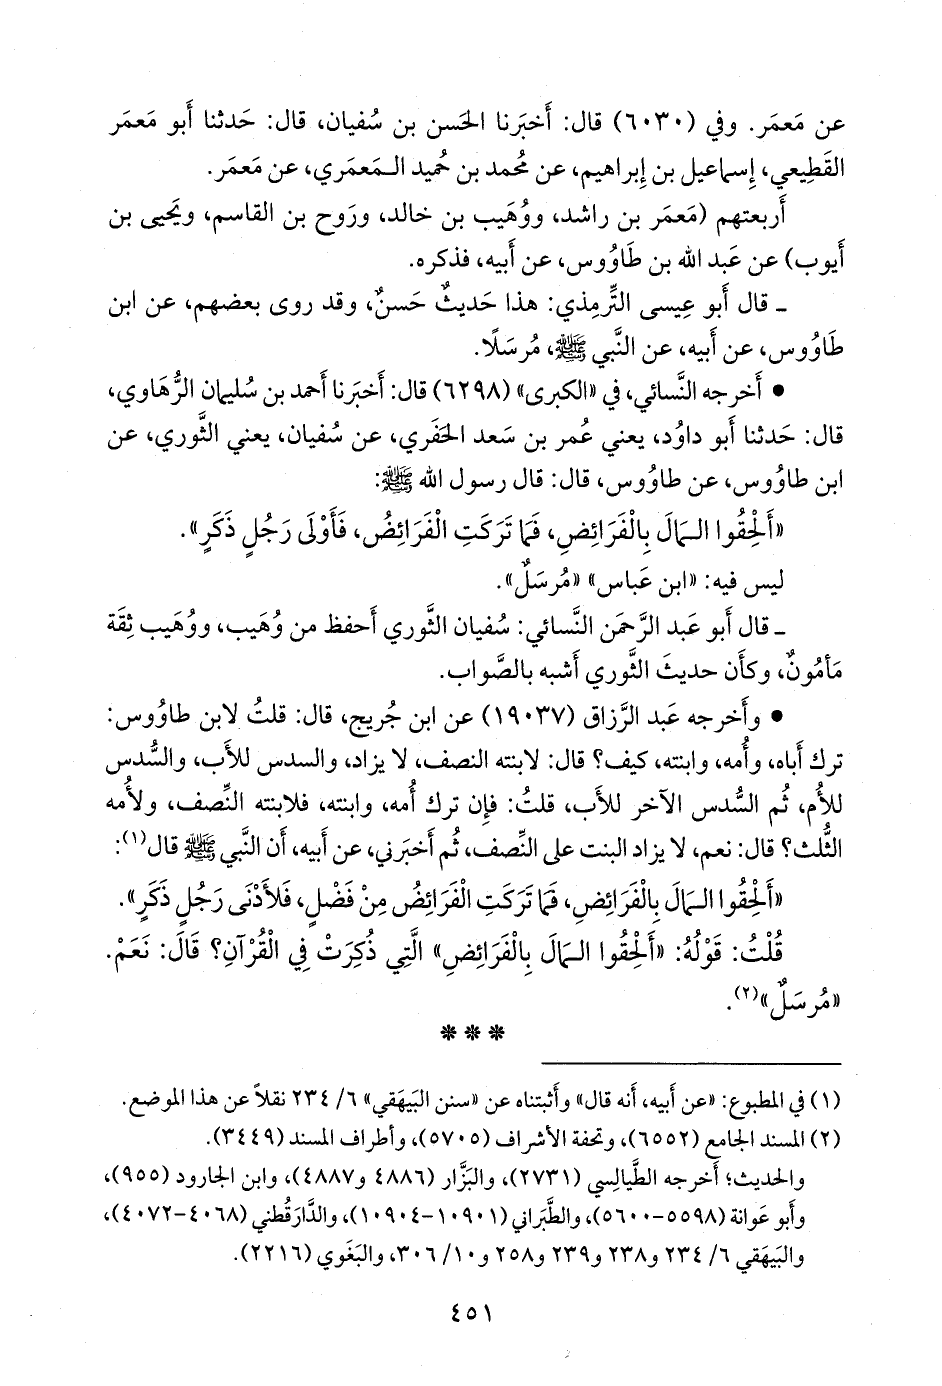 عن مَعمَر. وفي (٦٠٣٠) قال: أَخبَرنا الحَسن بن سُفيان، قال: حَدثنا أَبو مَعمَر
القَطِيعي، إِسماعيل بن إِبراهيم، عن مُحمد بن حُميد الـمَعمَري، عن مَعمَر.
أَربعتهم (مَعمَر بن راشد، ووُهَيب بن خالد، ورَوح بن القاسم، ويَحيى بن
أَيوب) عن عَبد الله بن طَاوُوس، عن أَبيه، فذكره.
ـ قال أَبو عِيسى التِّرمِذي: هذا حَديثٌ حَسنٌ، وقد روى بعضهم، عن ابن
طَاوُوس، عن أَبيه، عن النَّبي ﷺ، مُرسَلًا.
• أَخرجه النَّسائي، في «الكبرى» (٦٢٩٨) قال: أَخبَرنا أَحمد بن سُليمان الرُّهاوي،
قال: حَدثنا أَبو داوُد، يعني عُمر بن سَعد الحَفَري، عن سُفيان، يعني الثَّوري، عن
ابن طاوُوس، عن طاوُوس، قال: قال رسول الله ﷺ:
«أَلْحِقُوا الـمَالَ بِالْفَرَائِضِ، فَمَا تَرَكَتِ الْفَرَائِضُ، فَأَوْلَى رَجُلٍ ذَكَرٍ».
ليس فيه: «ابن عَباس» «مُرسَلٌ».
ـ قال أَبو عَبد الرَّحمَن النَّسائي: سُفيان الثَّوري أَحفظ من وُهَيب، ووُهَيب ثِقَة
مَأمُونٌ، وكأَن حديثَ الثَّوري أَشبه بالصَّواب.
• وأَخرجه عَبد الرَّزاق (١٩٠٣٧) عن ابن جُريج، قال: قلتُ لابن طاوُوس:
ترك أَباه، وأُمه، وابنته، كيف؟ قال: لابنته النصف، لا يزاد، والسدس للأَب، والسُّدس
للأُم، ثُم السُّدس الآخر للأَب، قلتُ: فإِن ترك أُمه، وابنته، فلابنته النِّصف، ولأُمه
الثُّلث؟ قال: نعم، لا يزاد البنت على النِّصف، ثُم أَخبَرني، عن أَبيه، أَن النَّبي ﷺ قال(١):
«أَلْحِقُوا الـمَالَ بِالْفَرَائِضِ، فَمَا تَرَكَتِ الْفَرَائِضُ مِنْ فَضْلٍ، فَلأَدْنَى رَجُلٍ ذَكَرٍ».
قُلْتُ: قَوْلُهُ: «أَلْحِقُوا الـمَالَ بِالْفَرَائِضِ» الَّتِي ذُكِرَتْ فِي الْقُرْآنِ؟ قَالَ: نَعَمْ.
«مُرسَلٌ»(٢).
***
(١) في المطبوع: «عن أَبيه، أَنه قال» وأَثبتناه عن «سنن البَيهَقي» ٦/ ٢٣٤ نقلاً عن هذا الموضع.
(٢) المسند الجامع (٦٥٥٢)، وتحفة الأَشراف (٥٧٠٥)، وأَطراف المسند (٣٤٤٩).
والحديث؛ أَخرجه الطَّيالِسي (٢٧٣١)، والبَزَّار (٤٨٨٦ و٤٨٨٧)، وابن الجارود (٩٥٥)،
وأَبو عَوانة (٥٥٩٨-٥٦٠٠)، والطَّبَراني (١٠٩٠١-١٠٩٠٤)، والدَّارَقُطني (٤٠٦٨-٤٠٧٢)،
والبَيهَقي ٦/ ٢٣٤ و٢٣٨ و٢٣٩ و٢٥٨ و١٠/ ٣٠٦، والبَغَوي (٢٢١٦).
٤٥١